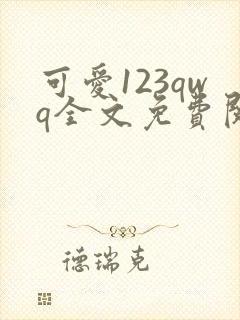 可愛123qw
q全文免費閱
德瑞克